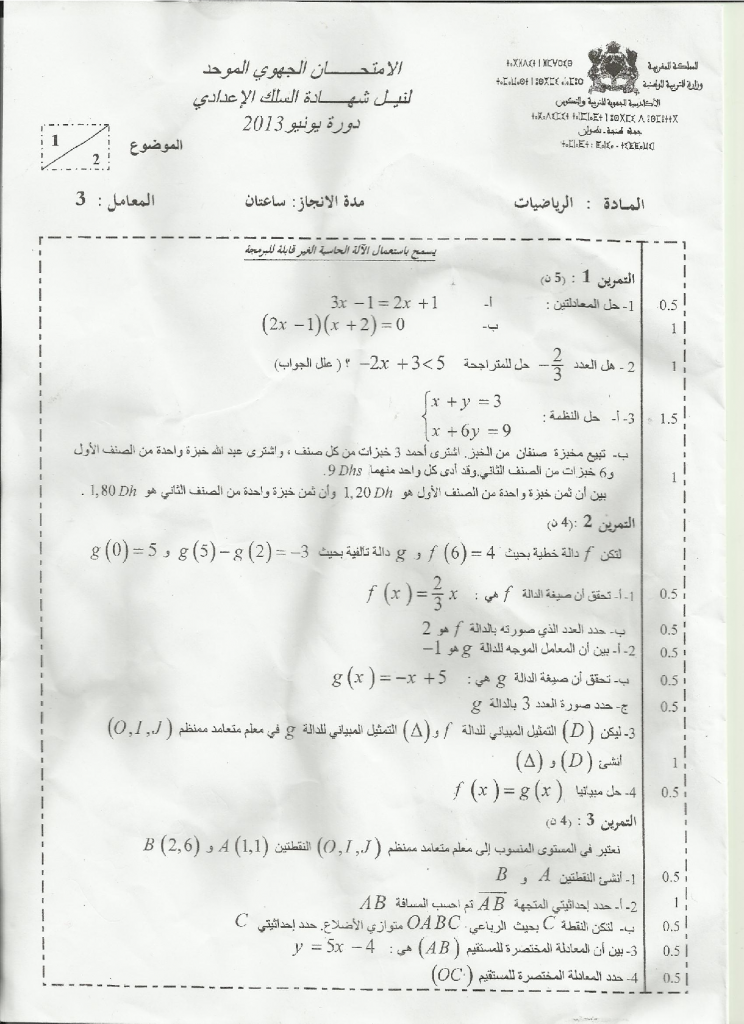 المملكة المغربية
وزارة التربية الوطنية
الأكاديمية الجهوية للتربية والتكوين
جهة طنجة - تطوان
الامتحـــان الجهوي الموحد
لنيـل شهـــادة السلك الإعدادي
دورة يونيو 2013
الموضوع
1
2
المـادة : الرياضيات
مدة الانجاز: ساعتان
المعامل : 3
يسمح باستعمال الآلة الحاسبة الغير قابلة للبرمجة
التمرين 1 : (5 ن)
1- حل المعادلتين : أ- 3x − 1 = 2x + 1 0.5
ب- (2x − 1)(x + 2) = 0 1
2- هل العدد −2/3 حل للمتراجحة −2x + 3 < 5 ؟ ( علل الجواب) 1
3- أ- حل النظمة : { x + y = 3 1.5
x + 6y = 9
ب- تبيع مخبزة صنفان من الخبز. اشترى أحمد 3 خبزات من كل صنف ، واشترى عبد الله خبزة واحدة من الصنف الأول
و6 خبزات من الصنف الثاني.وقد أدى كل واحد منهما 9 Dhs. 1
بين أن ثمن خبزة واحدة من الصنف الأول هو 1,20 Dh وأن ثمن خبزة واحدة من الصنف الثاني هو 1,80 Dh .
التمرين 2 :(4 ن)
لتكن f دالة خطية بحيث f(6) = 4 و g دالة تالفية بحيث g(5) − g(2) = −3 و g(0) = 5
1- أ- تحقق أن صيغة الدالة f هي : f(x) = 2/3 x 0.5
ب- حدد العدد الذي صورته بالدالة f هو 2 0.5
2- أ- بين أن المعامل الموجه للدالة g هو −1 0.5
ب- تحقق أن صيغة الدالة g هي : g(x) = −x + 5 0.5
ج- حدد صورة العدد 3 بالدالة g 0.5
3- ليكن (D) التمثيل المبياني للدالة f و(Δ) التمثيل المبياني للدالة g في معلم متعامد ممنظم (O,I,J)
أنشئ (D) و (Δ) 1
4- حل مبيانيا f(x) = g(x) 0.5
التمرين 3 : (4 ن)
نعتبر في المستوى المنسوب إلى معلم متعامد ممنظم (O,I,J) النقطتين A(1,1) و B(2,6)
1- أنشئ النقطتين A و B 0.5
2- أ- حدد إحداثيتي المتجهة AB تم احسب المسافة AB 1
ب- لتكن النقطة C بحيث الرباعي OABC متوازي الأضلاع. حدد إحداثيتي C 0.5
3- بين أن المعادلة المختصرة للمستقيم (AB) هي : y = 5x − 4 0.5
4- حدد المعادلة المختصرة للمستقيم (OC) 0.5